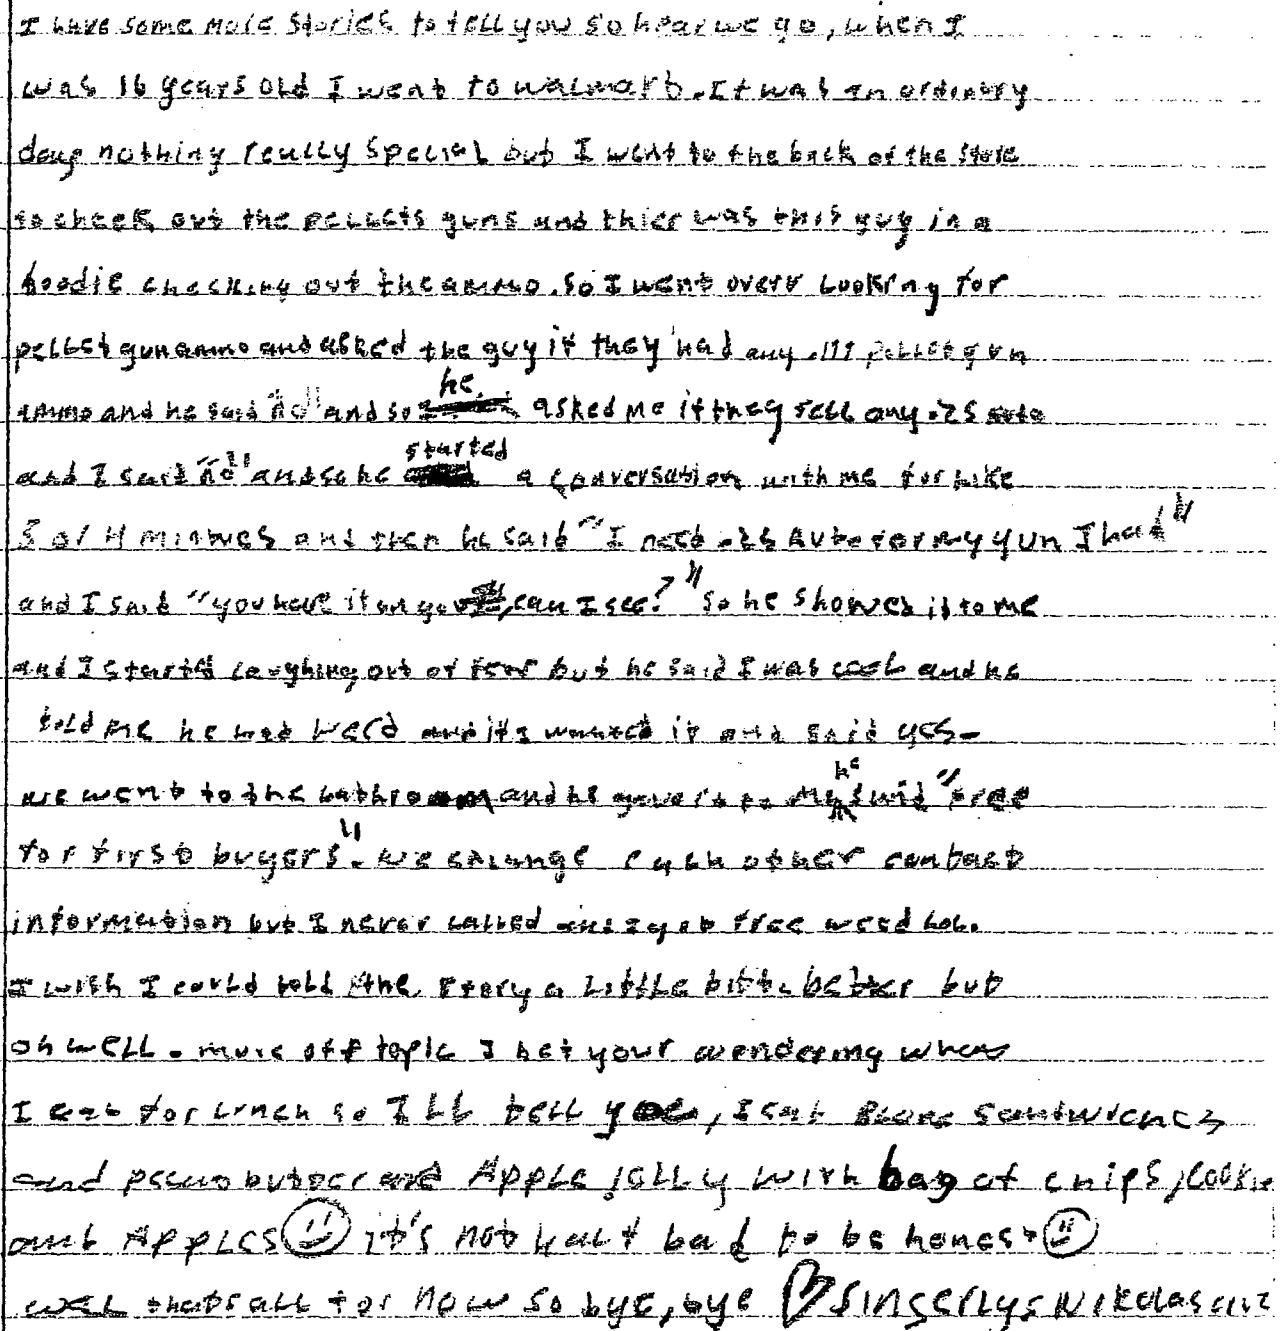 I have some more stories to tell you so hear we go, when I
was 16 years old I went to walmart. It was an ordinary
day nothing really special but I went to the back of the store
to check out the pellets guns and thier was this guy in a
hoodie checking out the ammo. So I went overr looking for
pellet gun ammo and asked the guy if they had any .177 pellet gun
ammo and he said "no" and so he asked me if they sell any .25 auto
and I said "no" and so he started a conversation with me for like
3 or 4 minutes and then he said "I need .25 Auto for my gun I had"
and I said "you have it on you, can I see?" So he showed it to me
and I started laughing out of fear but he said I was cool and he
told me he had weed and if I wanted it and said yes-
we went to the bathroom and he gave it to me he said "free
for first buyers". we exhange each other contact
information but I never called and I got free weed lol.
I wish I could told the story a little bitt better but
oh well. more off topic I bet your wondering what
I eat for lunch so I'll tell you, I eat sandwiches
and peanutbutter and Apple jelly with bag of chips, cookie
and Apples it's not half bad to be honest
well thats all for now so bye, bye Singerlys Nikolas cruz